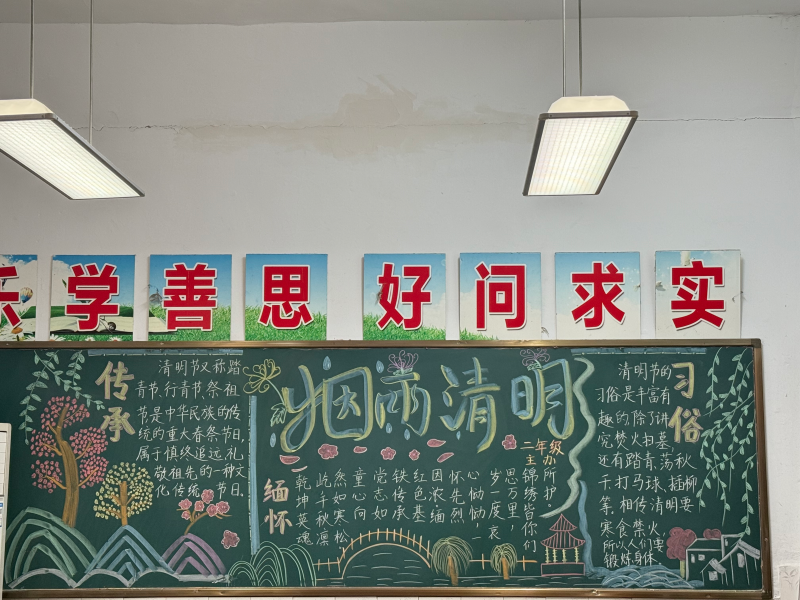 乐学善思 好问求实
传承
清明节又称踏
青节、行青节、祭祖
节是中华民族的传
统的重大春祭节日,
属于慎终追远、礼
敬祖先的一种文
化传统节日.
烟雨清明
二年级
主办
缅怀
乾坤英魂
此千秋凛
然如寒松
童心向
党志如
铁传承
红色基
因浓缅
怀先烈
心恸恸,
岁一度哀
思万里,
锦绣皆你们
所护
习俗
清明节的
习俗是丰富有
趣的,除了讲
究焚火扫墓
还有踏青、荡秋
千打马球、插柳
等.相传清明要
寒食禁火
所以人们要
锻炼身体.